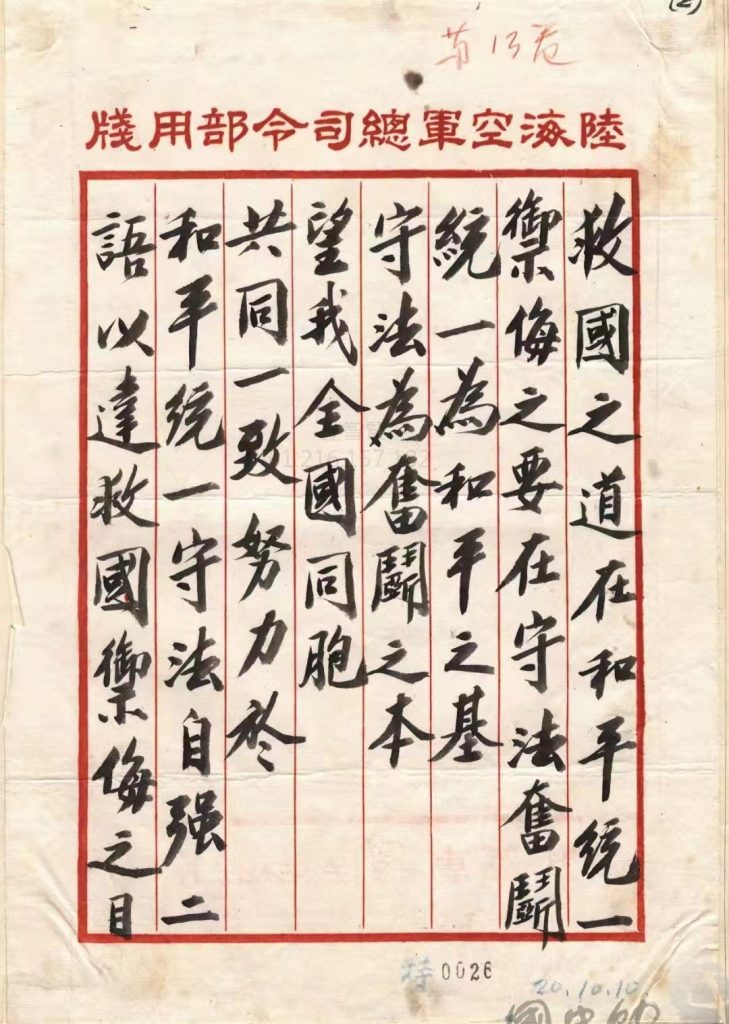 (2)
陸海空軍總司令部用牋
救國之道在和平統一
禦侮之要在守法奮鬪
統一為和平之基
守法為奮鬪之本
望我全國同胞
共同一致努力於
和平統一守法自强二
語以達救國禦侮之目
0026
20.10.10.